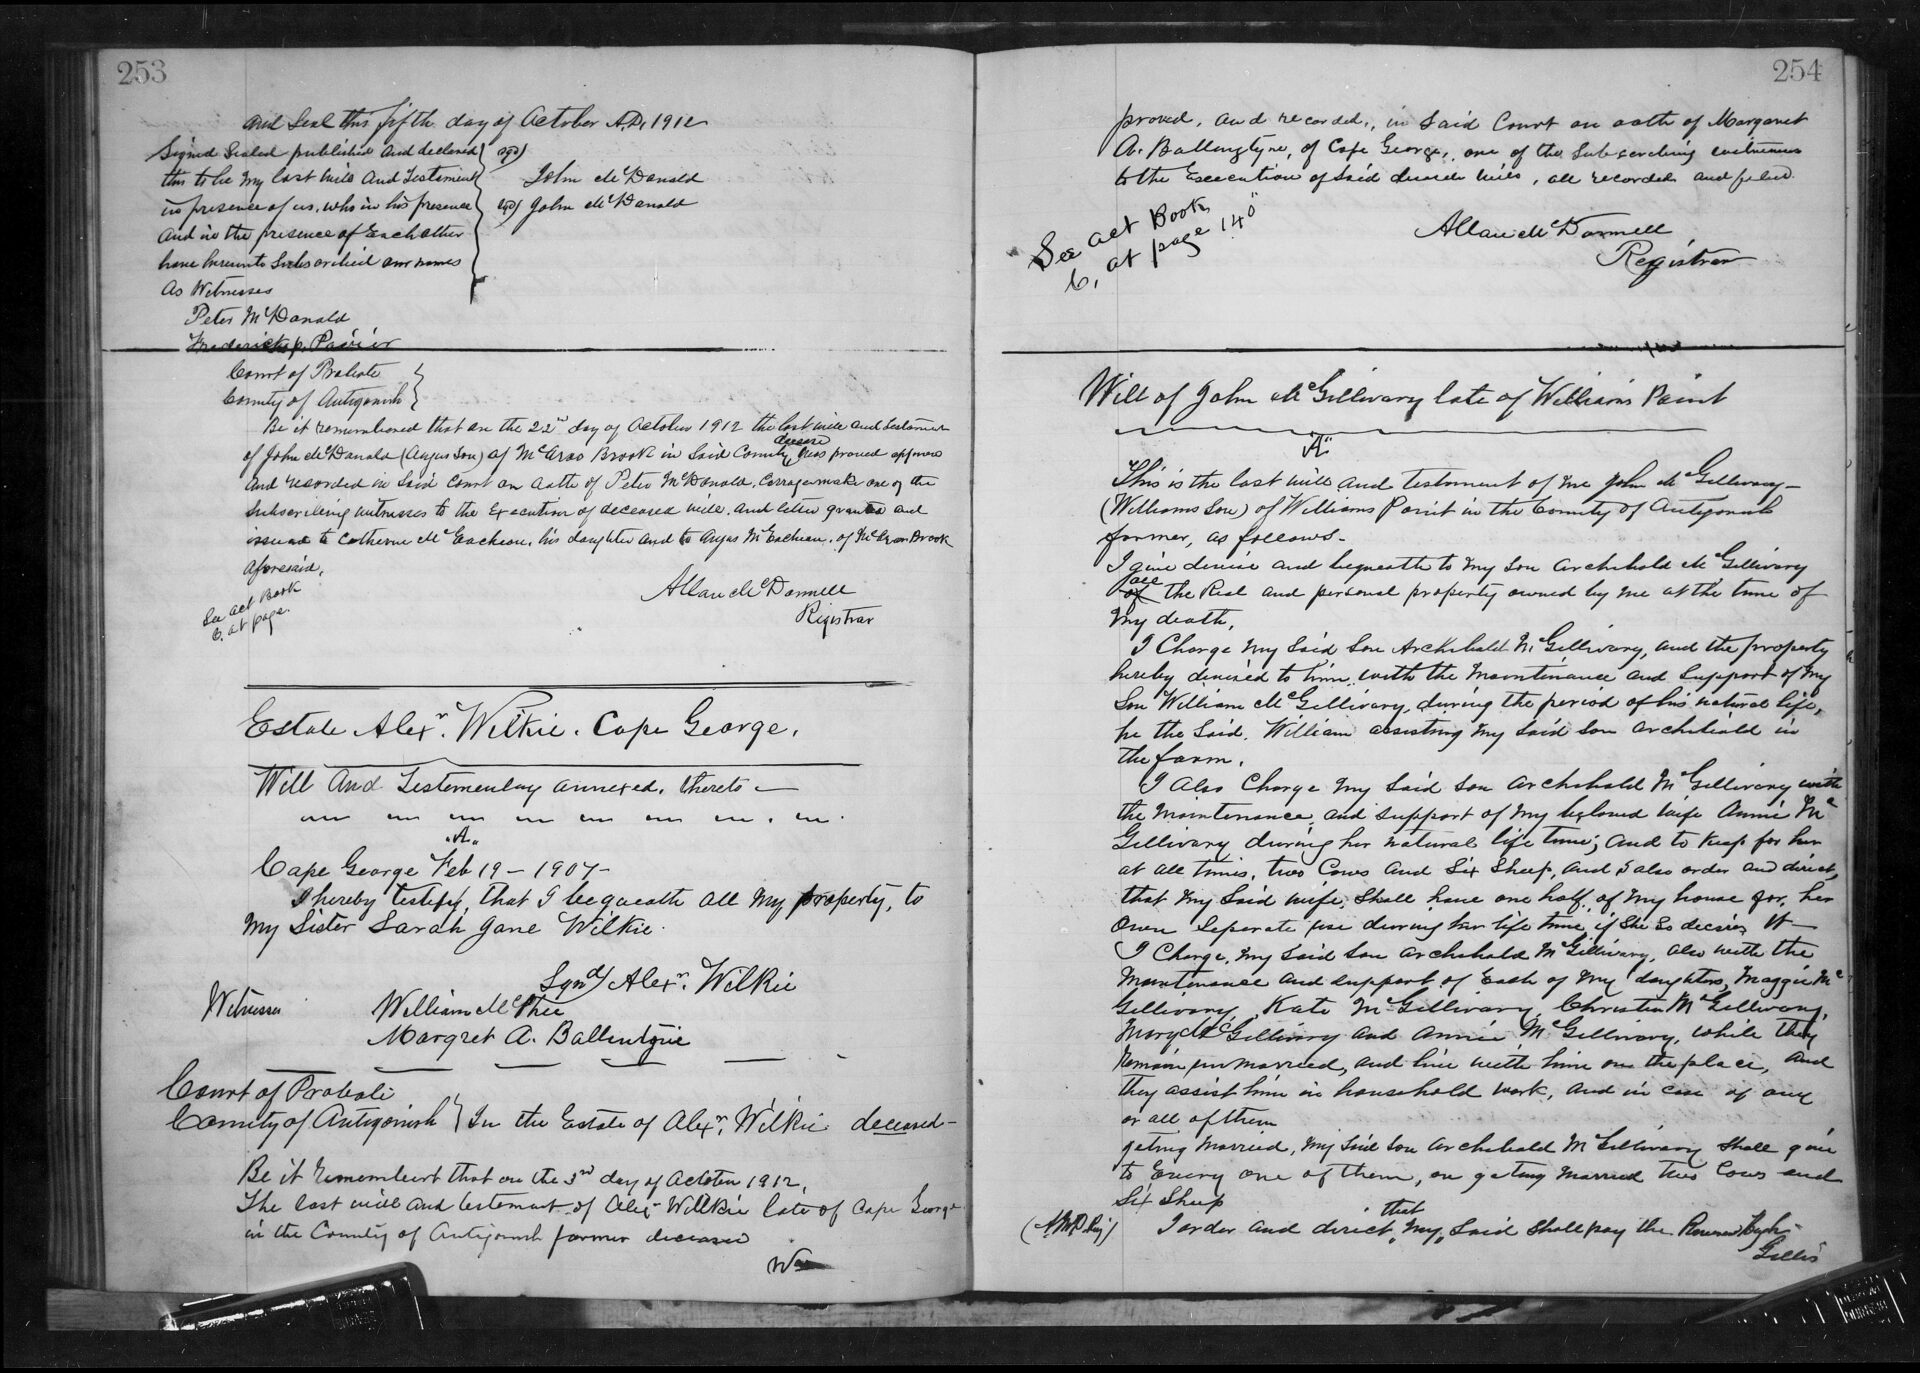 253
and Seal this fifth day of October A.D, 1912
Signed Sealed published and declared
this to be my last will and Testament
in presence of us, who in his presence
and in the presence of Each other
have hereunto Subscribed our names
As Witnesses
Peter McDonald
Frederick P.
sgd) John McDonald
sgd) John McDonald
Court of Probate
County of Antigonish
Be it remembered that on the 22nd day of October 1912 the last will and testament
of John McDonald (Angus Son) of McAras Brook in Said County deceased was proved approved
and recorded in Said Court on oath of Peter McDonald, Carragemaker one of the
Subscribing witnesses to the Execution of deceased will. And letters granted and
issued to Catherine McEachern, his daughter and to Angus McEachern, of McAras Brook
Aforesaid,
See act Book
6. at page.
Allan McDonnell
Registrar
Estate Alexr. Wilkie. Cape George.
Will and Testementary annexed, thereto —
"A"
Cape George Feb 19 - 1907 -
I hereby testify, that I bequeath all my property, to
My Sister Sarah Jane Wilkie.
Sgnd/ Alexr. Wilkie
Witnesses
William McPhee
Margret A. Ballentyne
Court of Probate
County of Antigonish } In the Estate of Alexr. Wilkie deceased -
Be it rememberd that on the 3rd day of October 1912,
The last will and testament of Alexr Wilkie late of Cape George
in the County of Antigonish farmer deceased
Was
254
proved, and recorded, in Said Court on oath of Margaret
A. Ballingtyne, of Cape George, one of the Subscribing witnesses
to the Execution of Said deceased will, all recorded and filed.
See act Book
6. at page 140"
Allan McDonnell
Registrar
Will of John McGillivary late of Williams Point
"A"
This is the last will and testament of me John McGillivary -
(Williams Son) of Williams Point in the County of Antigonish
farmer, as follows -
I give devise and bequeath to my Son Archibald McGillivary
all
of the Real and personal property owned by me at the time of
My death,
I Charge my Said Son Archibald McGillivary, and the property
hereby devised to him, with the Maintinance and Support of my
Son William McGillivary, during the period of his natural life,
he the Said. William assisting my Said Son Archibald in
the farm.
I Also Charge my Said Son Archibald McGillivary with
the Maintenance and Support of my beloved wife Annie Mc
Gillivary during her natural life time; and to Keep for her
at all times, two Cows and Six Sheep, and I also order and direct,
that my Said wife, Shall have one half, of my house for, her
Own Seperate use during her life time, if She So decsires it -
I Charge, my Said Son Archibald McGillivary, also with the
Maintenance and Support of Each of my daughters, Maggie Mc
Gillivary, Kate McGillivary, Christie McGillivary,
Mary McGillivary and Annie McGillivary, while they
remain unmarried, and live with him on the place, and
they assist him in household work, and in case of any
or all of them
geting married, my Said Son Archibald McGillivary Shall give
to Every one of them, on geting Married two Cows and
Six Sheep
(A.McD. Reg)
that
I order and direct, my, Said Shall pay the Reverend Hugh
Gillis